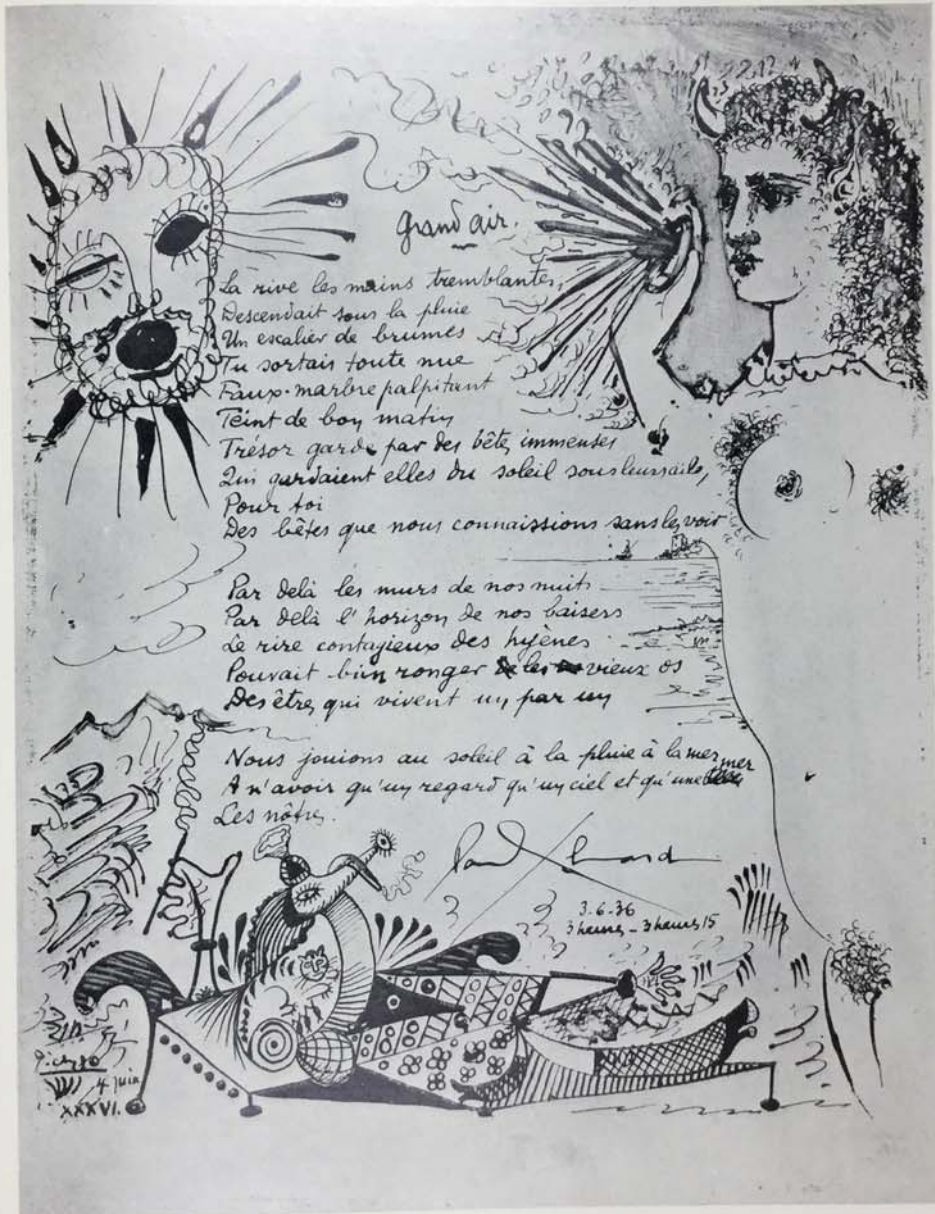 Grand air.
La rive les mains tremblantes,
Descendait sous la pluie
Un escalier de brumes
Tu sortais toute nue
Faux-marbre palpitant
Teint de bon matin
Trésor gardé par des bêtes immenses
Qui gardaient elles du soleil sous leurs ailes,
Pour toi
Des bêtes que nous connaissions sans les voir
Par delà les murs de nos nuits
Par delà l'horizon de nos baisers
Le rire contagieux des hyènes
Pouvait bien ronger les vieux os
Des êtres qui vivent un par un
Nous jouions au soleil à la pluie à la mer
A n'avoir qu'un regard qu'un ciel et qu'une mer
Les nôtres.
Paul Eluard
3-6-36
3 heures - 3 heures 15
Picasso
4 juin
XXXVI.